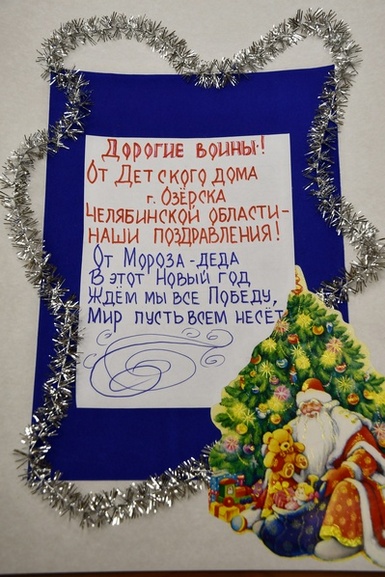 Дорогие воины!
От Детского дома
г. Озёрска
Челябинской области-
наши поздравления!
От Мороза-деда
В этот Новый год
Ждём мы все Победу,
Мир пусть всем несёт